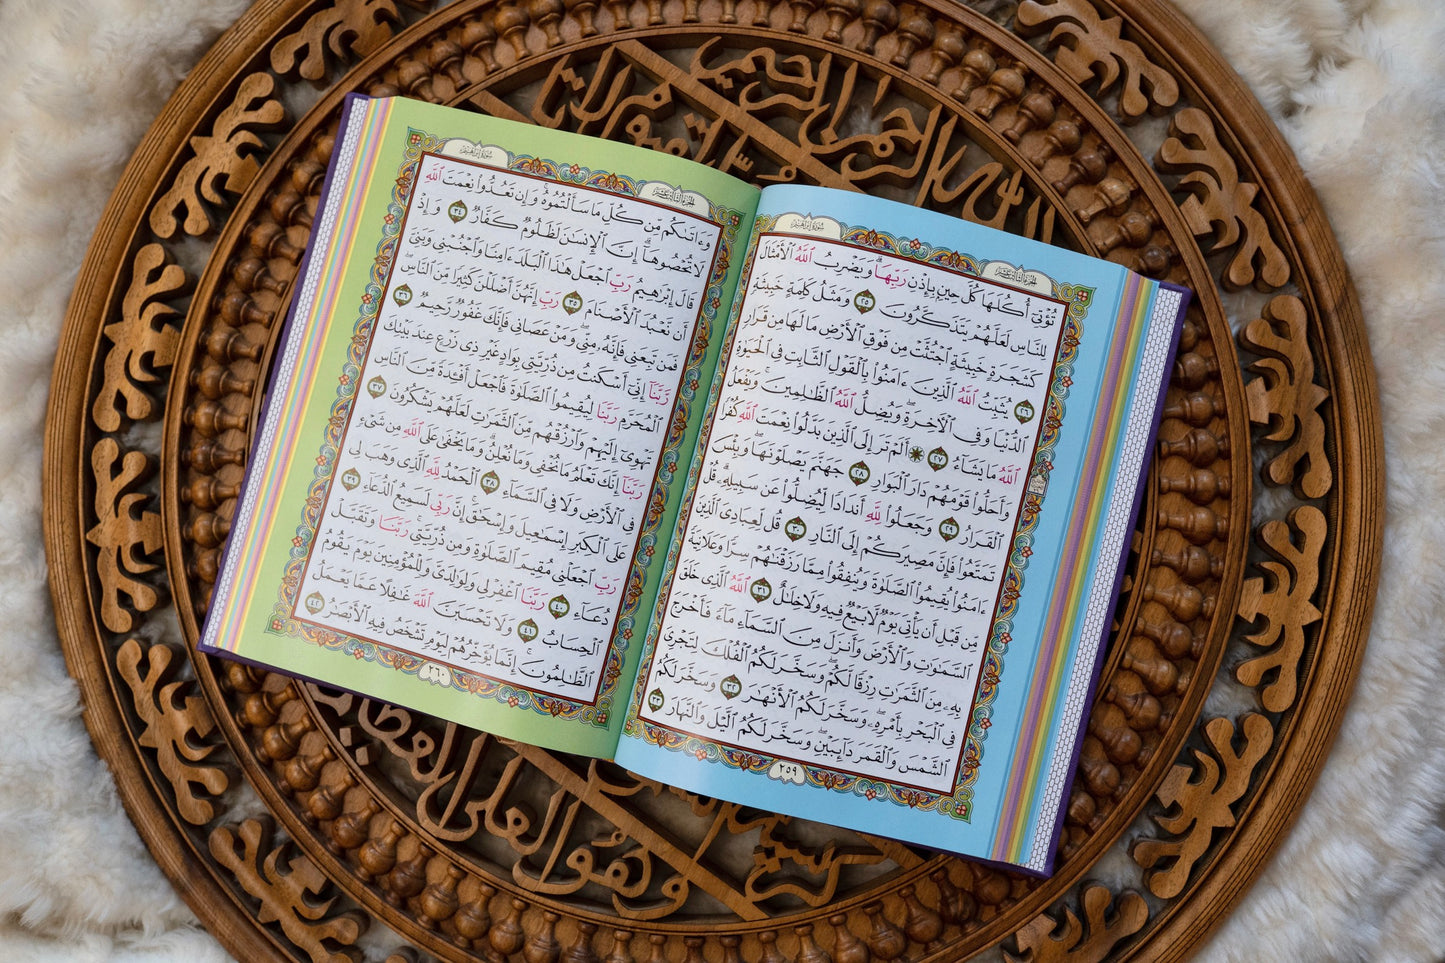 سُورَةُ إِبْرَاهِيم
الجُزْءُ الثَّالِثَ عَشَرَ
تُؤْتِىٓ أُكُلَهَا كُلَّ حِينٍۭ بِإِذْنِ رَبِّهَاۗ وَيَضْرِبُ ٱللَّهُ ٱلْأَمْثَالَ
لِلنَّاسِ لَعَلَّهُمْ يَتَذَكَّرُونَ ٢٥ وَمَثَلُ كَلِمَةٍ خَبِيثَةٍ
كَشَجَرَةٍ خَبِيثَةٍ ٱجْتُثَّتْ مِن فَوْقِ ٱلْأَرْضِ مَا لَهَا مِن قَرَارٍ
٢٦ يُثَبِّتُ ٱللَّهُ ٱلَّذِينَ ءَامَنُوا۟ بِٱلْقَوْلِ ٱلثَّابِتِ فِى ٱلْحَيَوٰةِ
ٱلدُّنْيَا وَفِى ٱلْـَٔاخِرَةِۖ وَيُضِلُّ ٱللَّهُ ٱلظَّـٰلِمِينَۚ وَيَفْعَلُ
ٱللَّهُ مَا يَشَآءُ ٢٧ ۞ أَلَمْ تَرَ إِلَى ٱلَّذِينَ بَدَّلُوا۟ نِعْمَتَ ٱللَّهِ كُفْرًا
وَأَحَلُّوا۟ قَوْمَهُمْ دَارَ ٱلْبَوَارِ ٢٨ جَهَنَّمَ يَصْلَوْنَهَاۖ وَبِئْسَ
ٱلْقَرَارُ ٢٩ وَجَعَلُوا۟ لِلَّهِ أَندَادًا لِّيُضِلُّوا۟ عَن سَبِيلِهِۦۗ قُلْ
تَمَتَّعُوا۟ فَإِنَّ مَصِيرَكُمْ إِلَى ٱلنَّارِ ٣٠ قُل لِّعِبَادِىَ ٱلَّذِينَ
ءَامَنُوا۟ يُقِيمُوا۟ ٱلصَّلَوٰةَ وَيُنفِقُوا۟ مِمَّا رَزَقْنَـٰهُمْ سِرًّا وَعَلَانِيَةً
مِّن قَبْلِ أَن يَأْتِىَ يَوْمٌ لَّا بَيْعٌ فِيهِ وَلَا خِلَـٰلٌ ٣١ ٱللَّهُ ٱلَّذِى خَلَقَ
ٱلسَّمَـٰوَٰتِ وَٱلْأَرْضَ وَأَنزَلَ مِنَ ٱلسَّمَآءِ مَآءً فَأَخْرَجَ
بِهِۦ مِنَ ٱلثَّمَرَٰتِ رِزْقًا لَّكُمْۖ وَسَخَّرَ لَكُمُ ٱلْفُلْكَ لِتَجْرِىَ
فِى ٱلْبَحْرِ بِأَمْرِهِۦۖ وَسَخَّرَ لَكُمُ ٱلْأَنْهَـٰرَ ٣٢ وَسَخَّرَ لَكُمُ
ٱلشَّمْسَ وَٱلْقَمَرَ دَآئِبَيْنِۖ وَسَخَّرَ لَكُمُ ٱلَّيْلَ وَٱلنَّهَارَ ٣٣
٢٥٩
سُورَةُ إِبْرَاهِيم
الجُزْءُ الثَّالِثَ عَشَرَ
وَءَاتَىٰكُم مِّن كُلِّ مَا سَأَلْتُمُوهُۚ وَإِن تَعُدُّوا۟ نِعْمَتَ ٱللَّهِ
لَا تُحْصُوهَآۗ إِنَّ ٱلْإِنسَـٰنَ لَظَلُومٌ كَفَّارٌ ٣٤ وَإِذْ
قَالَ إِبْرَٰهِيمُ رَبِّ ٱجْعَلْ هَـٰذَا ٱلْبَلَدَ ءَامِنًا وَٱجْنُبْنِى وَبَنِىَّ
أَن نَّعْبُدَ ٱلْأَصْنَامَ ٣٥ رَبِّ إِنَّهُنَّ أَضْلَلْنَ كَثِيرًا مِّنَ ٱلنَّاسِۖ
فَمَن تَبِعَنِى فَإِنَّهُۥ مِنِّىۖ وَمَنْ عَصَانِى فَإِنَّكَ غَفُورٌ رَّحِيمٌ ٣٦
رَّبَّنَآ إِنِّىٓ أَسْكَنتُ مِن ذُرِّيَّتِى بِوَادٍ غَيْرِ ذِى زَرْعٍ عِندَ بَيْتِكَ
ٱلْمُحَرَّمِ رَبَّنَا لِيُقِيمُوا۟ ٱلصَّلَوٰةَ فَٱجْعَلْ أَفْـِٔدَةً مِّنَ ٱلنَّاسِ
تَهْوِىٓ إِلَيْهِمْ وَٱرْزُقْهُم مِّنَ ٱلثَّمَرَٰتِ لَعَلَّهُمْ يَشْكُرُونَ ٣٧
رَبَّنَآ إِنَّكَ تَعْلَمُ مَا نُخْفِى وَمَا نُعْلِنُۗ وَمَا يَخْفَىٰ عَلَى ٱللَّهِ مِن شَىْءٍ
فِى ٱلْأَرْضِ وَلَا فِى ٱلسَّمَآءِ ٣٨ ٱلْحَمْدُ لِلَّهِ ٱلَّذِى وَهَبَ لِى
عَلَى ٱلْكِبَرِ إِسْمَـٰعِيلَ وَإِسْحَـٰقَۚ إِنَّ رَبِّى لَسَمِيعُ ٱلدُّعَآءِ ٣٩
رَبِّ ٱجْعَلْنِى مُقِيمَ ٱلصَّلَوٰةِ وَمِن ذُرِّيَّتِىۚ رَبَّنَا وَتَقَبَّلْ
دُعَآءِ ٤٠ رَبَّنَا ٱغْفِرْ لِى وَلِوَٰلِدَىَّ وَلِلْمُؤْمِنِينَ يَوْمَ يَقُومُ
ٱلْحِسَابُ ٤١ وَلَا تَحْسَبَنَّ ٱللَّهَ غَـٰفِلًا عَمَّا يَعْمَلُ
ٱلظَّـٰلِمُونَۚ إِنَّمَا يُؤَخِّرُهُمْ لِيَوْمٍ تَشْخَصُ فِيهِ ٱلْأَبْصَـٰرُ ٤٢
٢٦٠
الرحمن الرحيم
وهو العلي العظيم